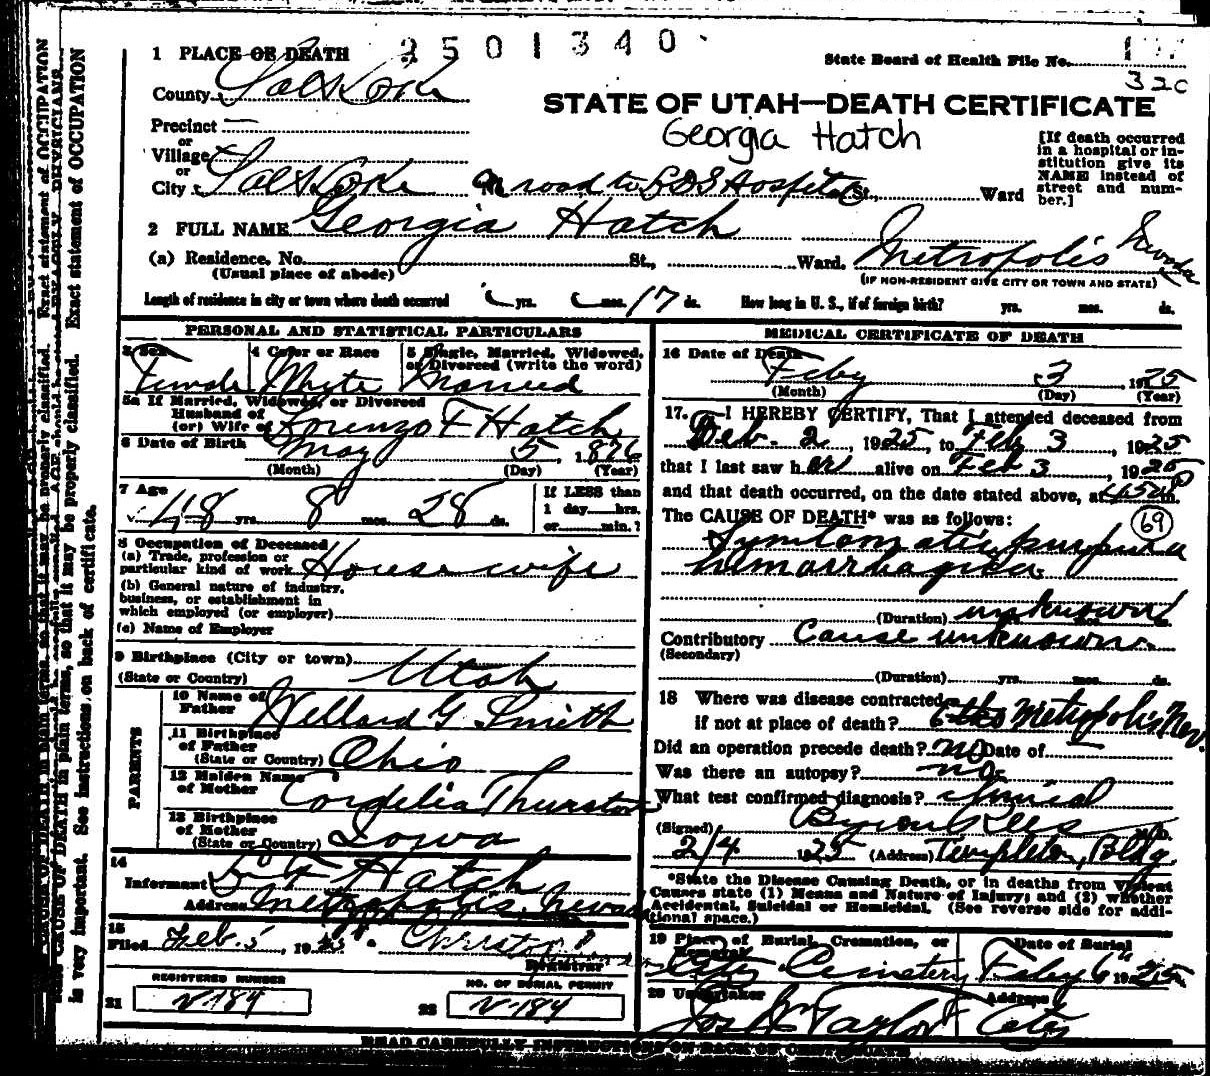 2501340
1 PLACE OF DEATH
State Board of Health File No.
32C
County Salt Lake
STATE OF UTAH—DEATH CERTIFICATE
Georgia Hatch
Precinct —
or
Village
or
City Salt Lake on road to LDS Hospital St., Ward
[If death occurred in a hospital or institution give its NAME instead of street and number.]
2 FULL NAME Georgia Hatch
(a) Residence, No. St., Ward. Metropolis Nevada
(Usual place of abode)
(IF NON-RESIDENT GIVE CITY OR TOWN AND STATE)
Length of residence in city or town where death occurred yrs. mos. 17 ds. How long in U. S., if of foreign birth? yrs. mos. ds.
PERSONAL AND STATISTICAL PARTICULARS
3 Sex
Female
4 Color or Race
Whyte
5 Single, Married, Widowed, or Divorced (write the word)
Married
5a If Married, Widowed, or Divorced
Husband of
(or) Wife of Lorenzo F Hatch
6 Date of Birth May 5, 1876
(Month) (Day) (Year)
7 Age
48 yrs. 8 mos. 28 ds.
If LESS than
1 day hrs.
or min.?
8 Occupation of Deceased
(a) Trade, profession or
particular kind of work House wife
(b) General nature of industry,
business, or establishment in
which employed (or employer)
(c) Name of Employer
9 Birthplace (City or town)
(State or Country) Utah
PARENTS
10 Name of
Father Willard G Smith
11 Birthplace
of Father
(State or Country) Ohio
12 Maiden Name
of Mother Cordelia Thurston
13 Birthplace
of Mother
(State or Country) Iowa
14
Informant L F Hatch
Address Metropolis, Nevada
15
Filed Feb. 5, 1925
Registrar
REGISTERED NUMBER
21 N-184
NO. OF BURIAL PERMIT
22 N-184
MEDICAL CERTIFICATE OF DEATH
16 Date of Death
Feby 3, 1925
(Month) (Day) (Year)
17. I HEREBY CERTIFY, That I attended deceased from
Feb. 2, 1925, to Feb 3, 1925
that I last saw her alive on Feb 3, 1925
and that death occurred, on the date stated above, at 450 P m.
The CAUSE OF DEATH* was as follows:
69
Symtomatic purpura
hemorrhagica
(Duration) unknown
Contributory Cause unknown
(Secondary)
(Duration) yrs. mos. ds.
18 Where was disease contracted
if not at place of death? Metropolis Nev.
Did an operation precede death? no Date of —
Was there an autopsy? no
What test confirmed diagnosis? clinical
(Signed) Byron Rees M.D.
2/4 1925 (Address) Templeton, Bldg
*State the Disease Causing Death, or in deaths from Violent
Causes state (1) Means and Nature of Injury; and (2) whether
Accidental, Suicidal or Homicidal. (See reverse side for addi-
tional space.)
19 Place of Burial, Cremation, or
Removal
City Cemetery
Date of Burial
Feby 6" 1925
20 Undertaker
Jos Wm Taylor
Address
City
READ CAREFULLY INSTRUCTIONS ON BACK OF CERTIFICATE
CAUSE OF DEATH in plain terms, so that it may be properly classified. Exact statement of OCCUPATION
is very important. See instructions on back of certificate.